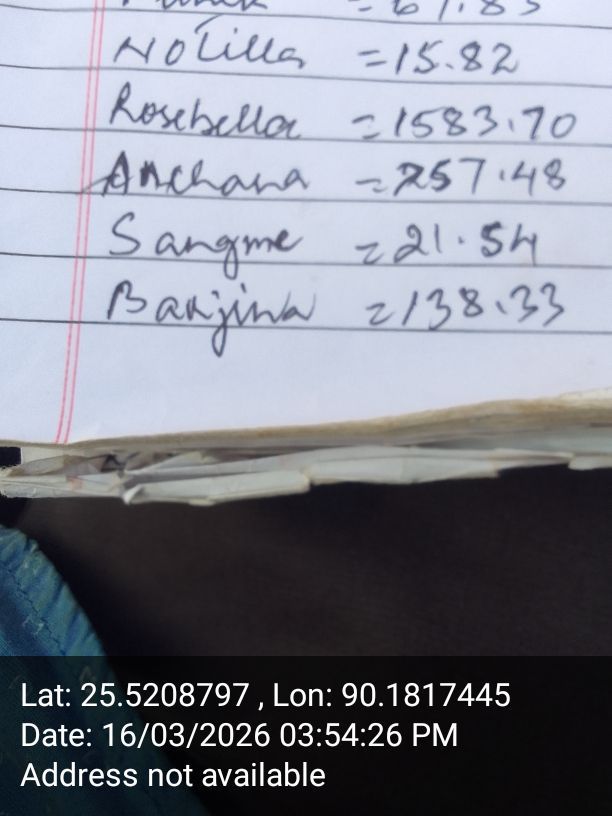 Notilla = 15.82
Rosebella = 1583.70
Anchana = 257.48
Sangme = 21.54
Barjina = 138.33
Lat: 25.5208797 , Lon: 90.1817445
Date: 16/03/2026 03:54:26 PM
Address not available